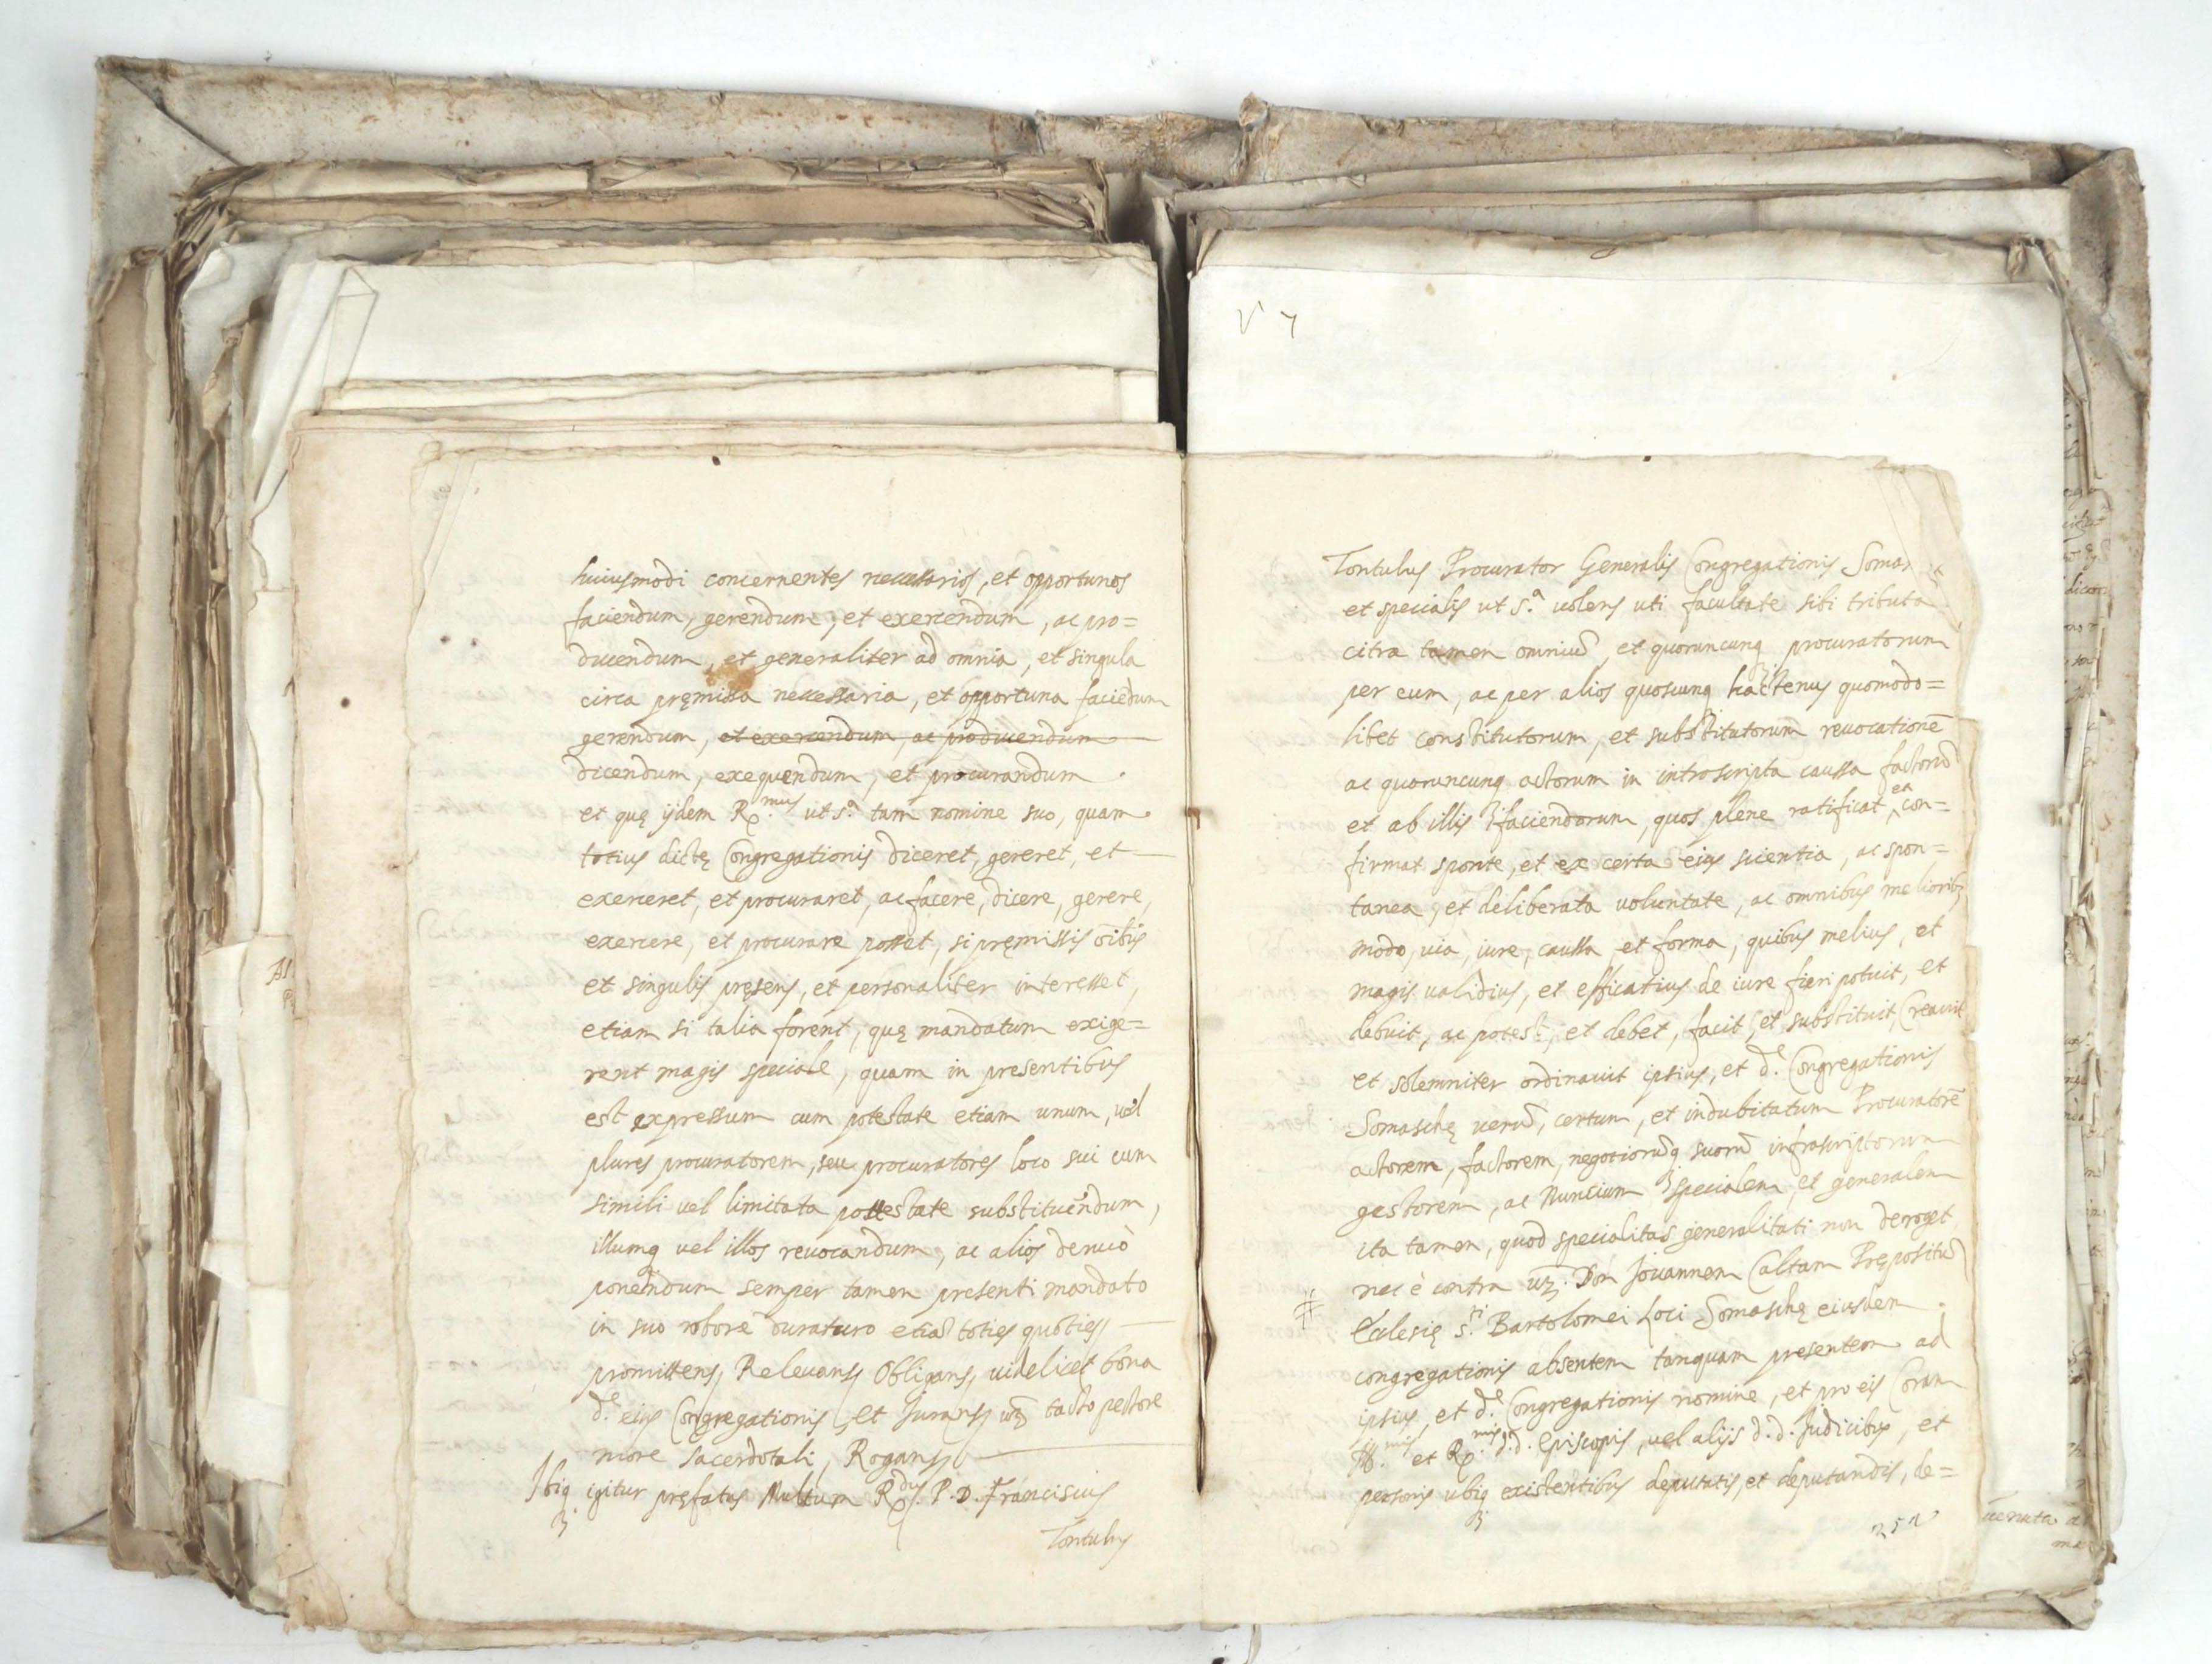 huiusmodi concernentes necessarios, et opportunos
faciendum, gerendum, et exercendum, ac pro=
ducendum, et generaliter ad omnia, et singula
circa pręmissa necessaria, et opportuna faciēdum
gerendum, et exercendum, ac producendum
dicendum, exequendum, et procurandum
et quę ijdem R.mus ut s.a tam nomine suo, quam
totius dictę Congregationis diceret, gereret, et
exerceret, et procuraret, ac facere, dicere, gerere,
exercere, et procurare posset, si pręmissis oībus
et singulis pręsens, et personaliter interesset,
etiam si talia forent, quę mandatum exige=
rent magis speciale, quam in presentibus
est expressum cum potestate etiam unum, vel
plures procuratorem, seu procuratores loco sui cum
simili vel limitata potestate substituendum,
illumq vel illos revocandum, ac alios denuò
ponendum semper tamen presenti mandato
in suo robore duraturo etiā toties quoties
promittens, Relevans, Obligans, videlicet bona
d.e eius Congregationis, et Jurans, uz tacto pectore
more sacerdotali, Rogans,
Ibiq igitur pręfatus Multum R.dus P. D. Franciscus
Tontulus
V 7
Tontulus Procurator Generalis Congregationis Somas
et specialis ut s.a volens uti facultate sibi tributa
citra tamen omniū, et quoruncunq procuratorum
per eum, ac per alios quoscunq hactenus quomodo=
libet constitutorum, et substitutorum revocationē
ac quoruncunq actorum in introscripta caussa factorū
et ab illis faciendorum, quos plene ratificat, ea con=
firmat sponte, et ex certa eius scientia, ac spon=
tanea, et deliberata voluntate, ac omnibus melioribus
modo, via, iure, caussa, et forma, quibus melius, et
magis validius, et efficatius de iure fieri potuit, et
debuit, ac potest, et debet, facit, et substituit, Creavit
et solemniter ordinavit ipsius, et d.e Congregationis
Somaschę verū, certum, et indubitatum Procuratorē
actorem, factorem, negotiorūq suorū infrascriptorum
gestorem, ac Nuncium specialem, et generalem
ita tamen, quod specialitas generalitati non deroget
nec è contra uz. Don Jovannem Caltam Prępositū
Ecclesię s.ti Bartolomei Loci Somaschę eiusdem
congregationis absentem tanquam presentem ad
ipsius, et d.e Congregationis nomine, et pro eis Coram
Ill.mis et R.mis d.d. Episcopis, vel alijs d.d. Judicibus, et
personis ubiq existentibus deputatis, et deputandis, de=
252